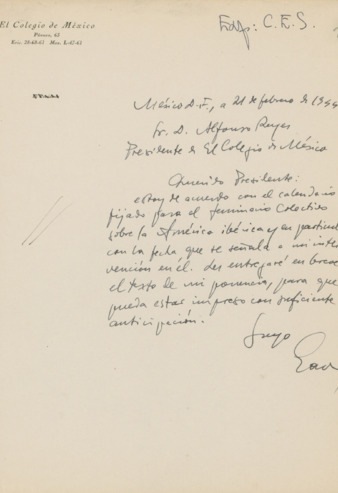 El Colegio de México
Pánuco, 63
Eric. 28-68-61 Mex. L-47-61
Exp: C. E. S.
México D.F., a 21 de febrero de 1944
Sr. D. Alfonso Reyes
Presidente de El Colegio de México
Querido Presidente:
estoy de acuerdo con el calendario
fijado para el Seminario Colectivo
sobre la América ibérica y en particul
con la fecha que se señala a mi inter
vención en él. Les entregaré en breve
el texto de mi ponencia, para que
pueda estar impreso con suficiente
anticipación.
Suyo